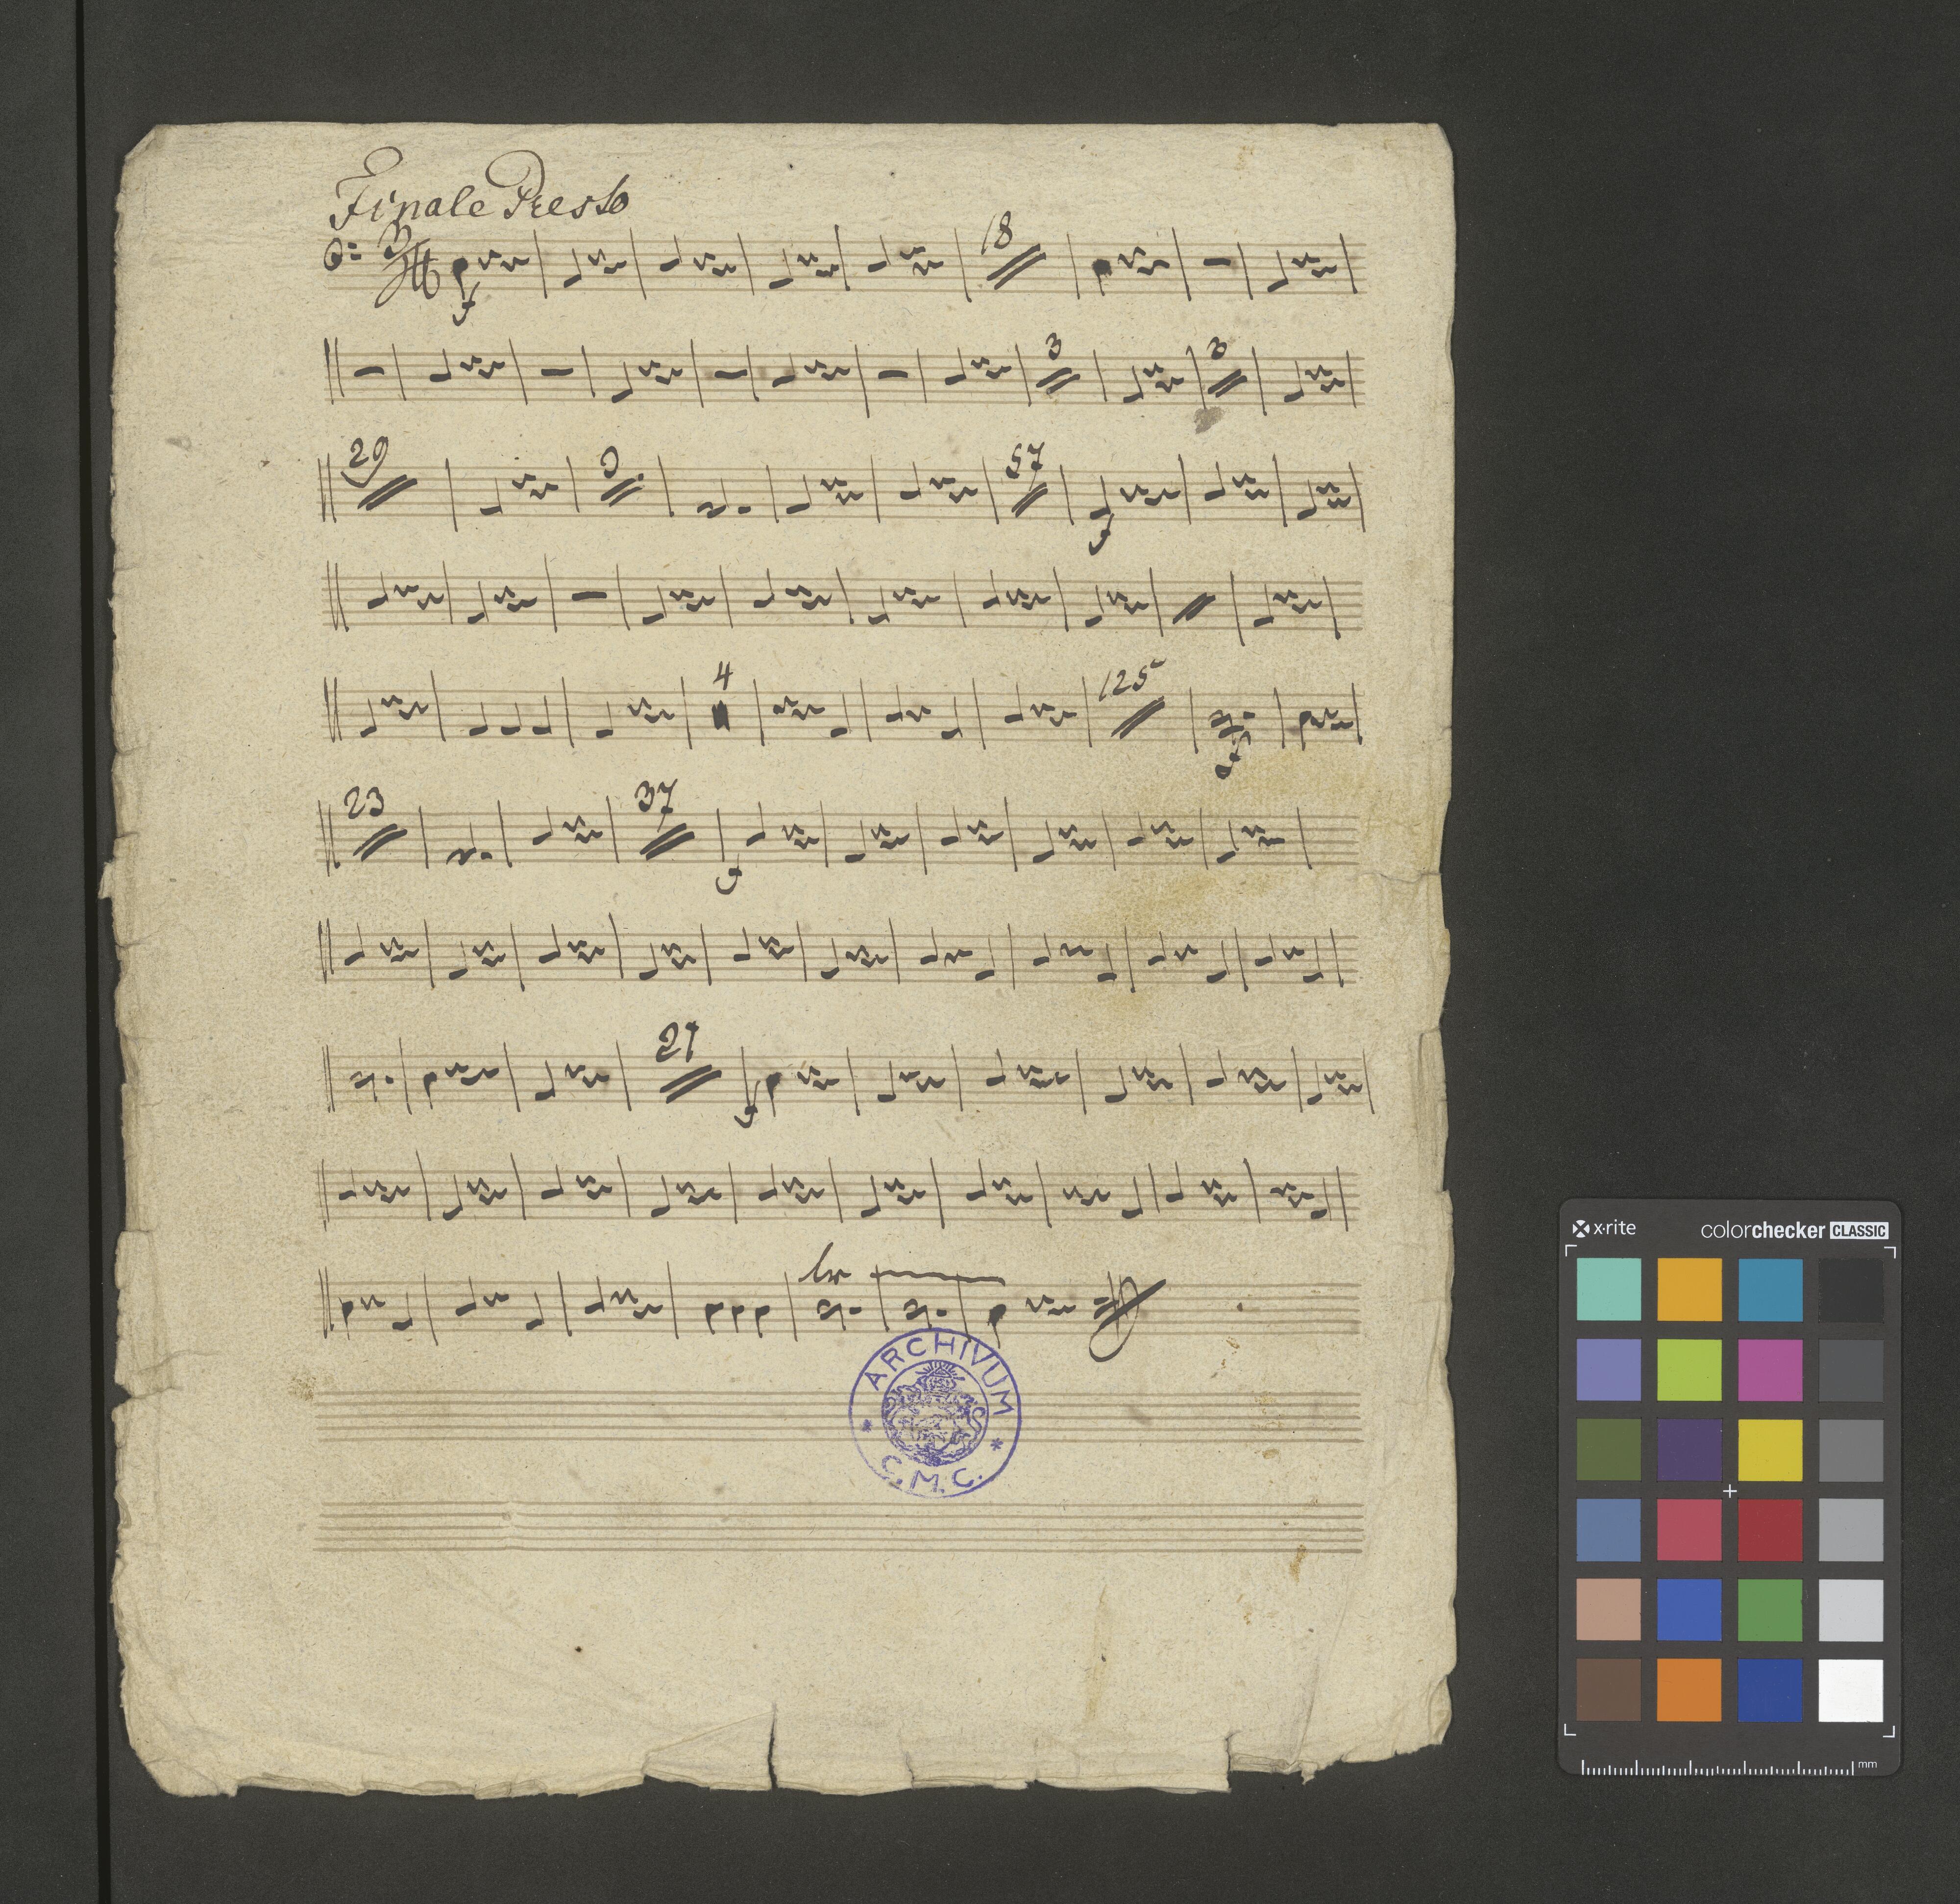 Finale Presto
3
f
18
3
3
29
57
f
4
125
23
37
f
f
tr
ARCHIVUM
* C.M.C. *
x-rite
colorchecker CLASSIC
mm